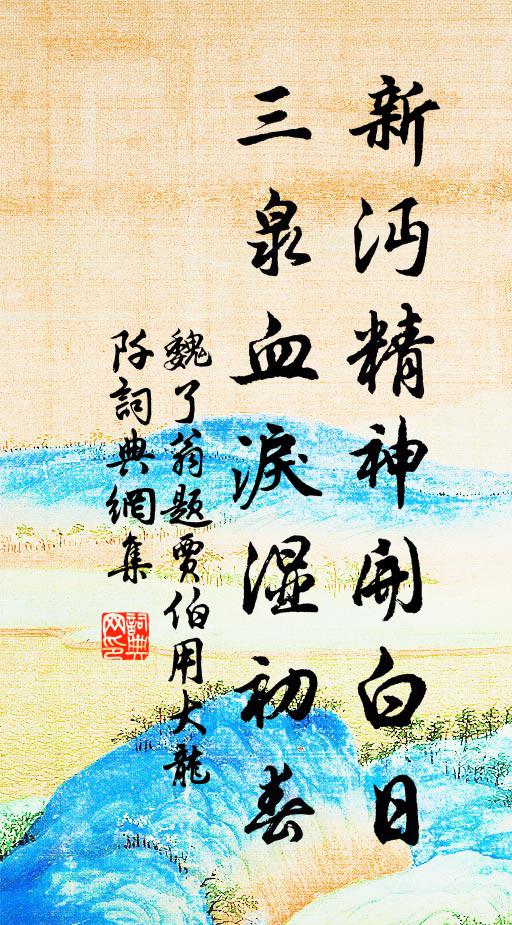 新沔精神開白日
三泉血淚濕初春
魏了翁題賈伯用大龍
阡詞典網集
詞典
网印